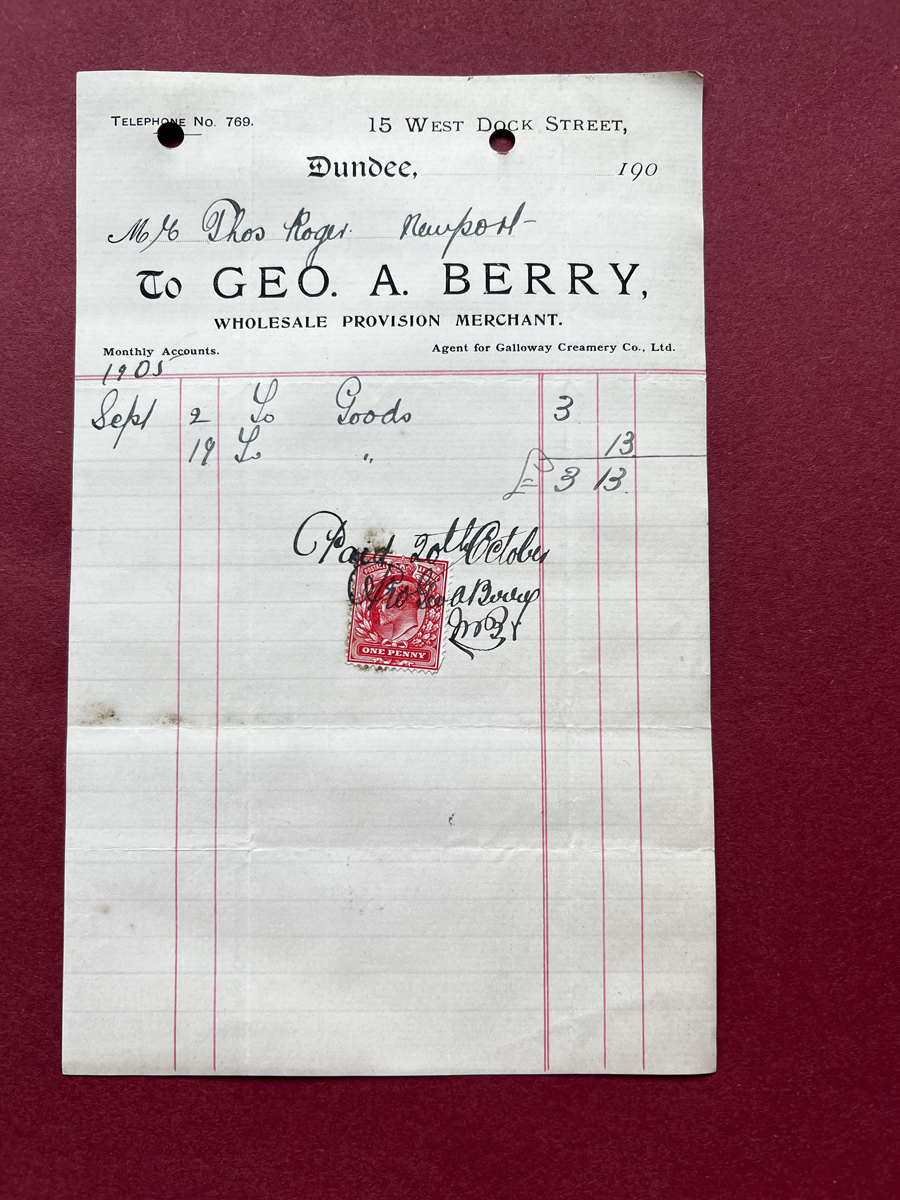 TELEPHONE No. 769. 15 WEST DOCK STREET,
Dundee, 190
Mr Thos Roger Newport
To GEO. A. BERRY,
WHOLESALE PROVISION MERCHANT.
Monthly Accounts. Agent for Galloway Creamery Co., Ltd.
1905
Sept 2 To Goods 3
19 To " 13
£ 3 13
Paid 20th October
Pro Geo A Berry
POSTAGE
ONE PENNY